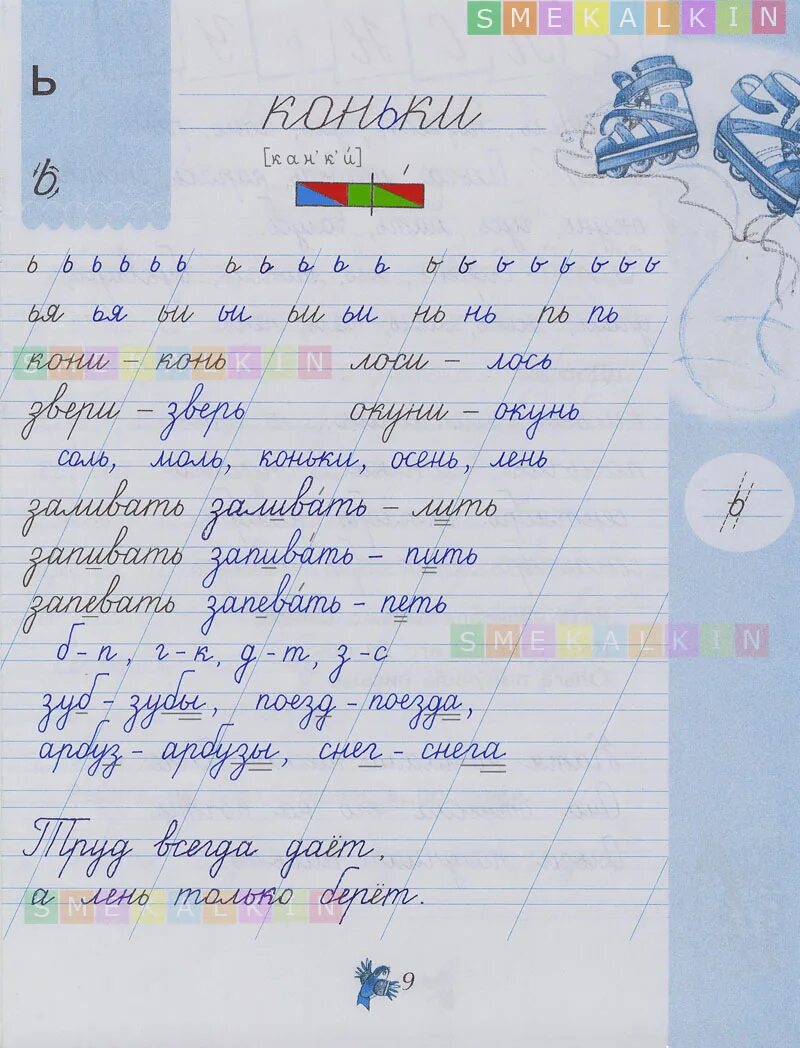 SMEKALKIN
ь
ь
коньки
[кан'к'и́]
ь ь ь ь ь ь ь ь ь ь ь ь ь ь ь ь ь ь ь ь
ья ья ьи ьи ьи ьи нь нь пь пь
кони – конь лоси – лось
SMEKALKIN
звери – зверь окуни – окунь
соль, моль, коньки, осень, лень
ь
заливать залива́ть – лить
запивать запива́ть – пить
запевать запева́ть – петь
SMEKALKIN
б-п, г-к, д-т, з-с
зуб – зубы, поезд – поезда,
арбуз – арбузы, снег – снега
Труд всегда даёт,
а лень только берёт.
SMEKALKIN
9